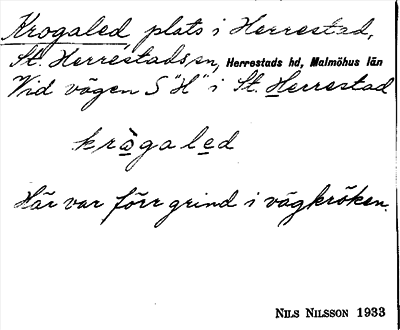 Krogaled, plats i Herrestad,
St. Herrestads sn, Herrestads hd, Malmöhus län
Vid vägen S "H" i St. Herrestad
krògaled
Här var förr grind i vägkröken.
NILS NILSSON 1933